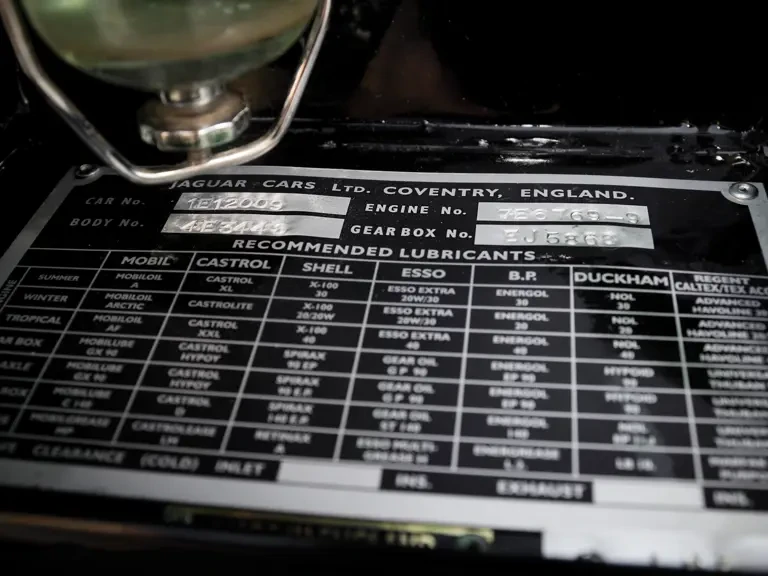 JAGUAR CARS LTD. COVENTRY, ENGLAND.
CAR No. 1E12009 ENGINE No. 7E6769-9
BODY No. 4E3449 GEAR BOX No. EJ5868
RECOMMENDED LUBRICANTS
MOBIL CASTROL SHELL ESSO B.P. DUCKHAM REGENT CALTEX/TEX ACO
SUMMER MOBILOIL A CASTROL XL X-100 30 ESSO EXTRA 20W/30 ENERGOL 30 NOL 30 ADVANCED HAVOLINE
WINTER MOBILOIL ARCTIC CASTROLITE X-100 20/20W ESSO EXTRA 20W/30 ENERGOL 20 NOL 20 ADVANCED HAVOLINE
TROPICAL MOBILOIL AF CASTROL XXL X-100 40 ESSO EXTRA 40 ENERGOL 40 NOL 40 ADVANCED HAVOLINE
AR BOX MOBILUBE GX 90 CASTROL HYPOY SPIRAX 90 EP GEAR OIL GP 90 ENERGOL EP 90 HYPOID 90
AXLE MOBILUBE GX 90 CASTROL HYPOY SPIRAX 90 EP GEAR OIL GP 90 ENERGOL EP 90 HYPOID 90
BOX MOBILUBE C 140 CASTROL D SPIRAX 140 E.P. GEAR OIL ST 140 ENERGOL 140 NOL
MOBILGREASE MP CASTROLEASE LM RETINAX A ESSO MULTI-GREASE H ENERGREASE L.2. LB 10.
VE CLEARANCE (COLD) INLET INS. EXHAUST INS.